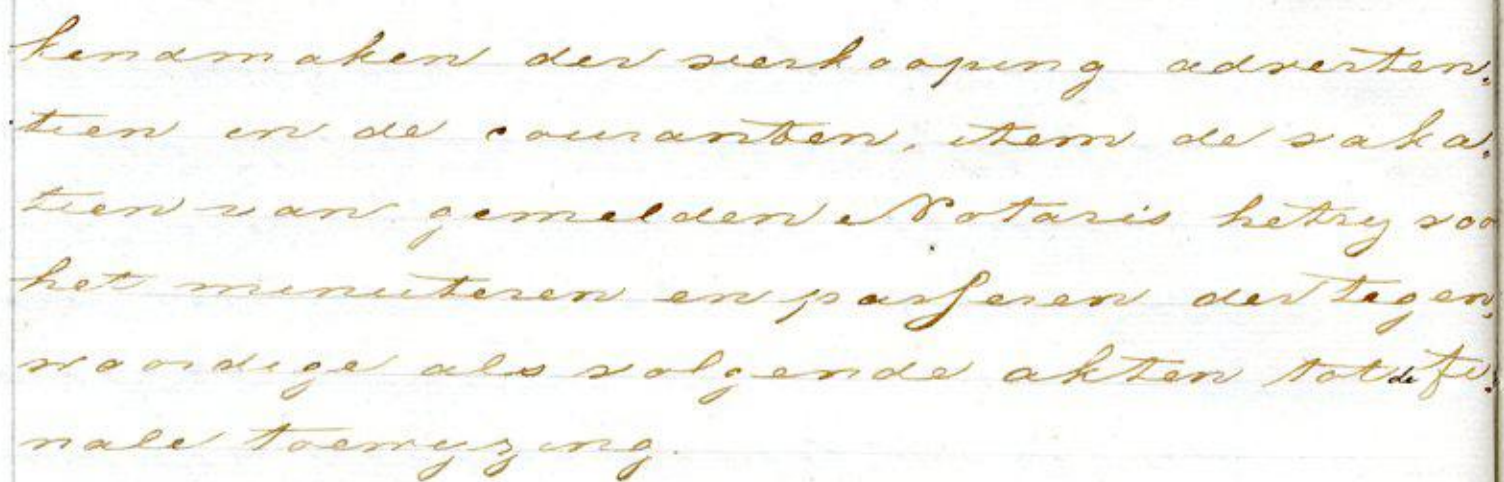 kendmaken der verkooping adverten„
tien in de couranten, item de vaka„
tien van gemelden Notaris hetzy voo
het minuteren en passeren der tegen„
woordige als volgende akten tot de fi„
nale toewyzing.